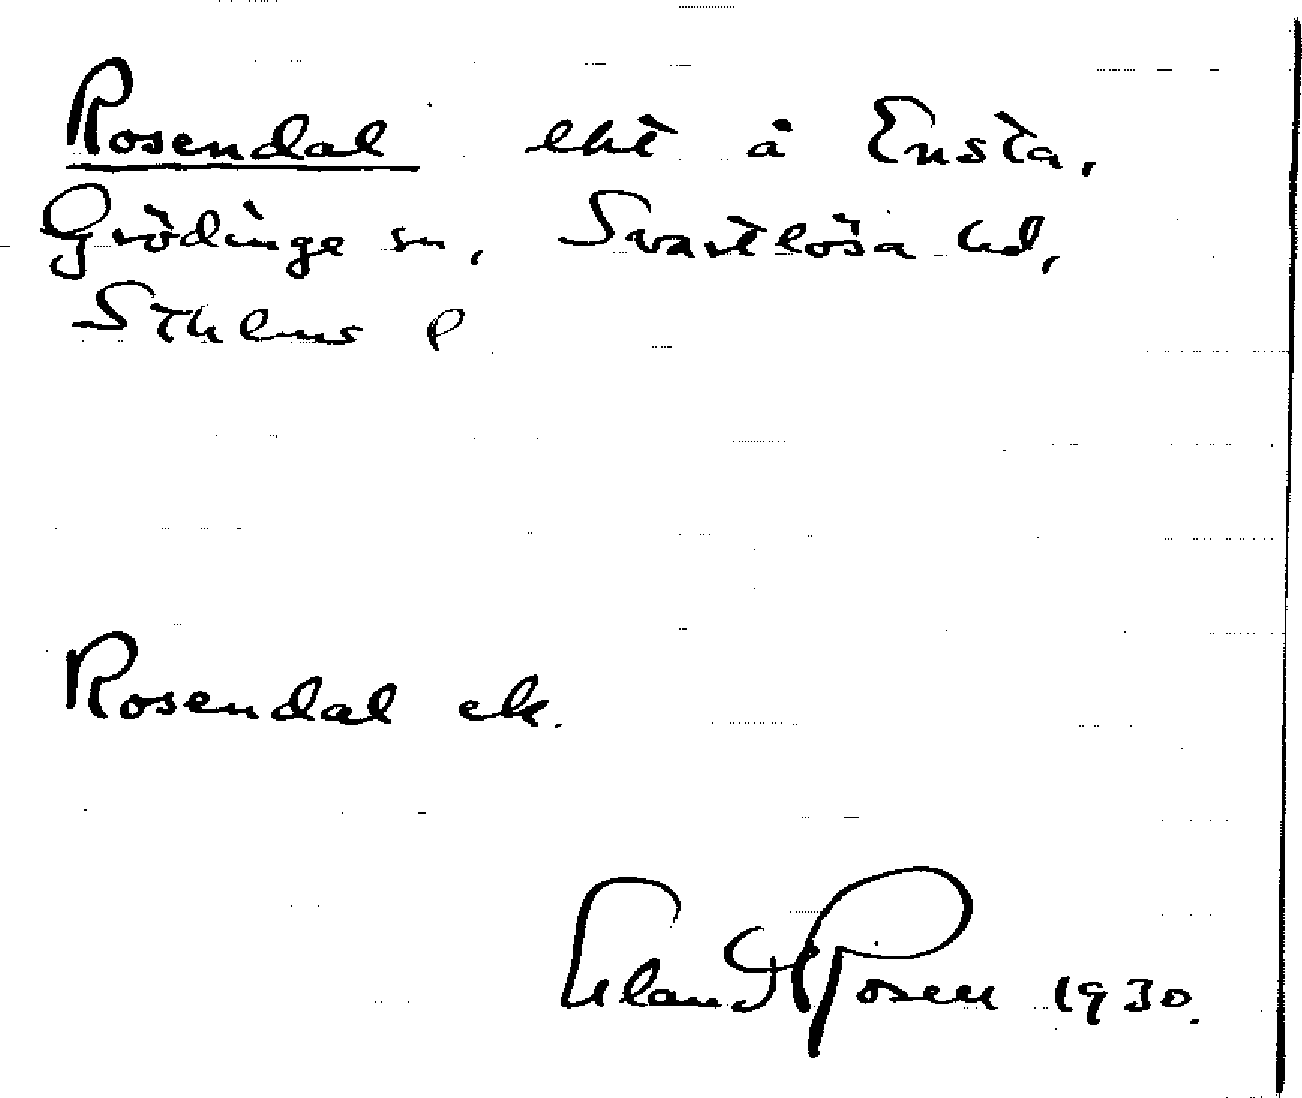 Rosendal lht å Ensta,
Grödinge sn, Svartlösa hd,
Sthlms l
Rosendal ek.
Erland Rosell 1930.